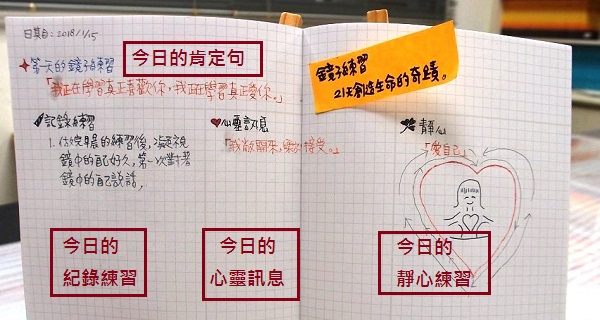 日期：2018/1/15
今日的肯定句
第一天的鏡子練習
「我正在學習真正喜歡你，我正在學習真正愛你。」
記錄練習
1. 做完早晨的練習後，凝視
鏡中的自己好久，第一次對著
鏡中的自己說話，
心靈訊息
「我敞開來，樂於接受。」
鏡子練習
21天創造生命的奇蹟。
靜心
「愛自己」
今日的
紀錄練習
今日的
心靈訊息
今日的
靜心練習